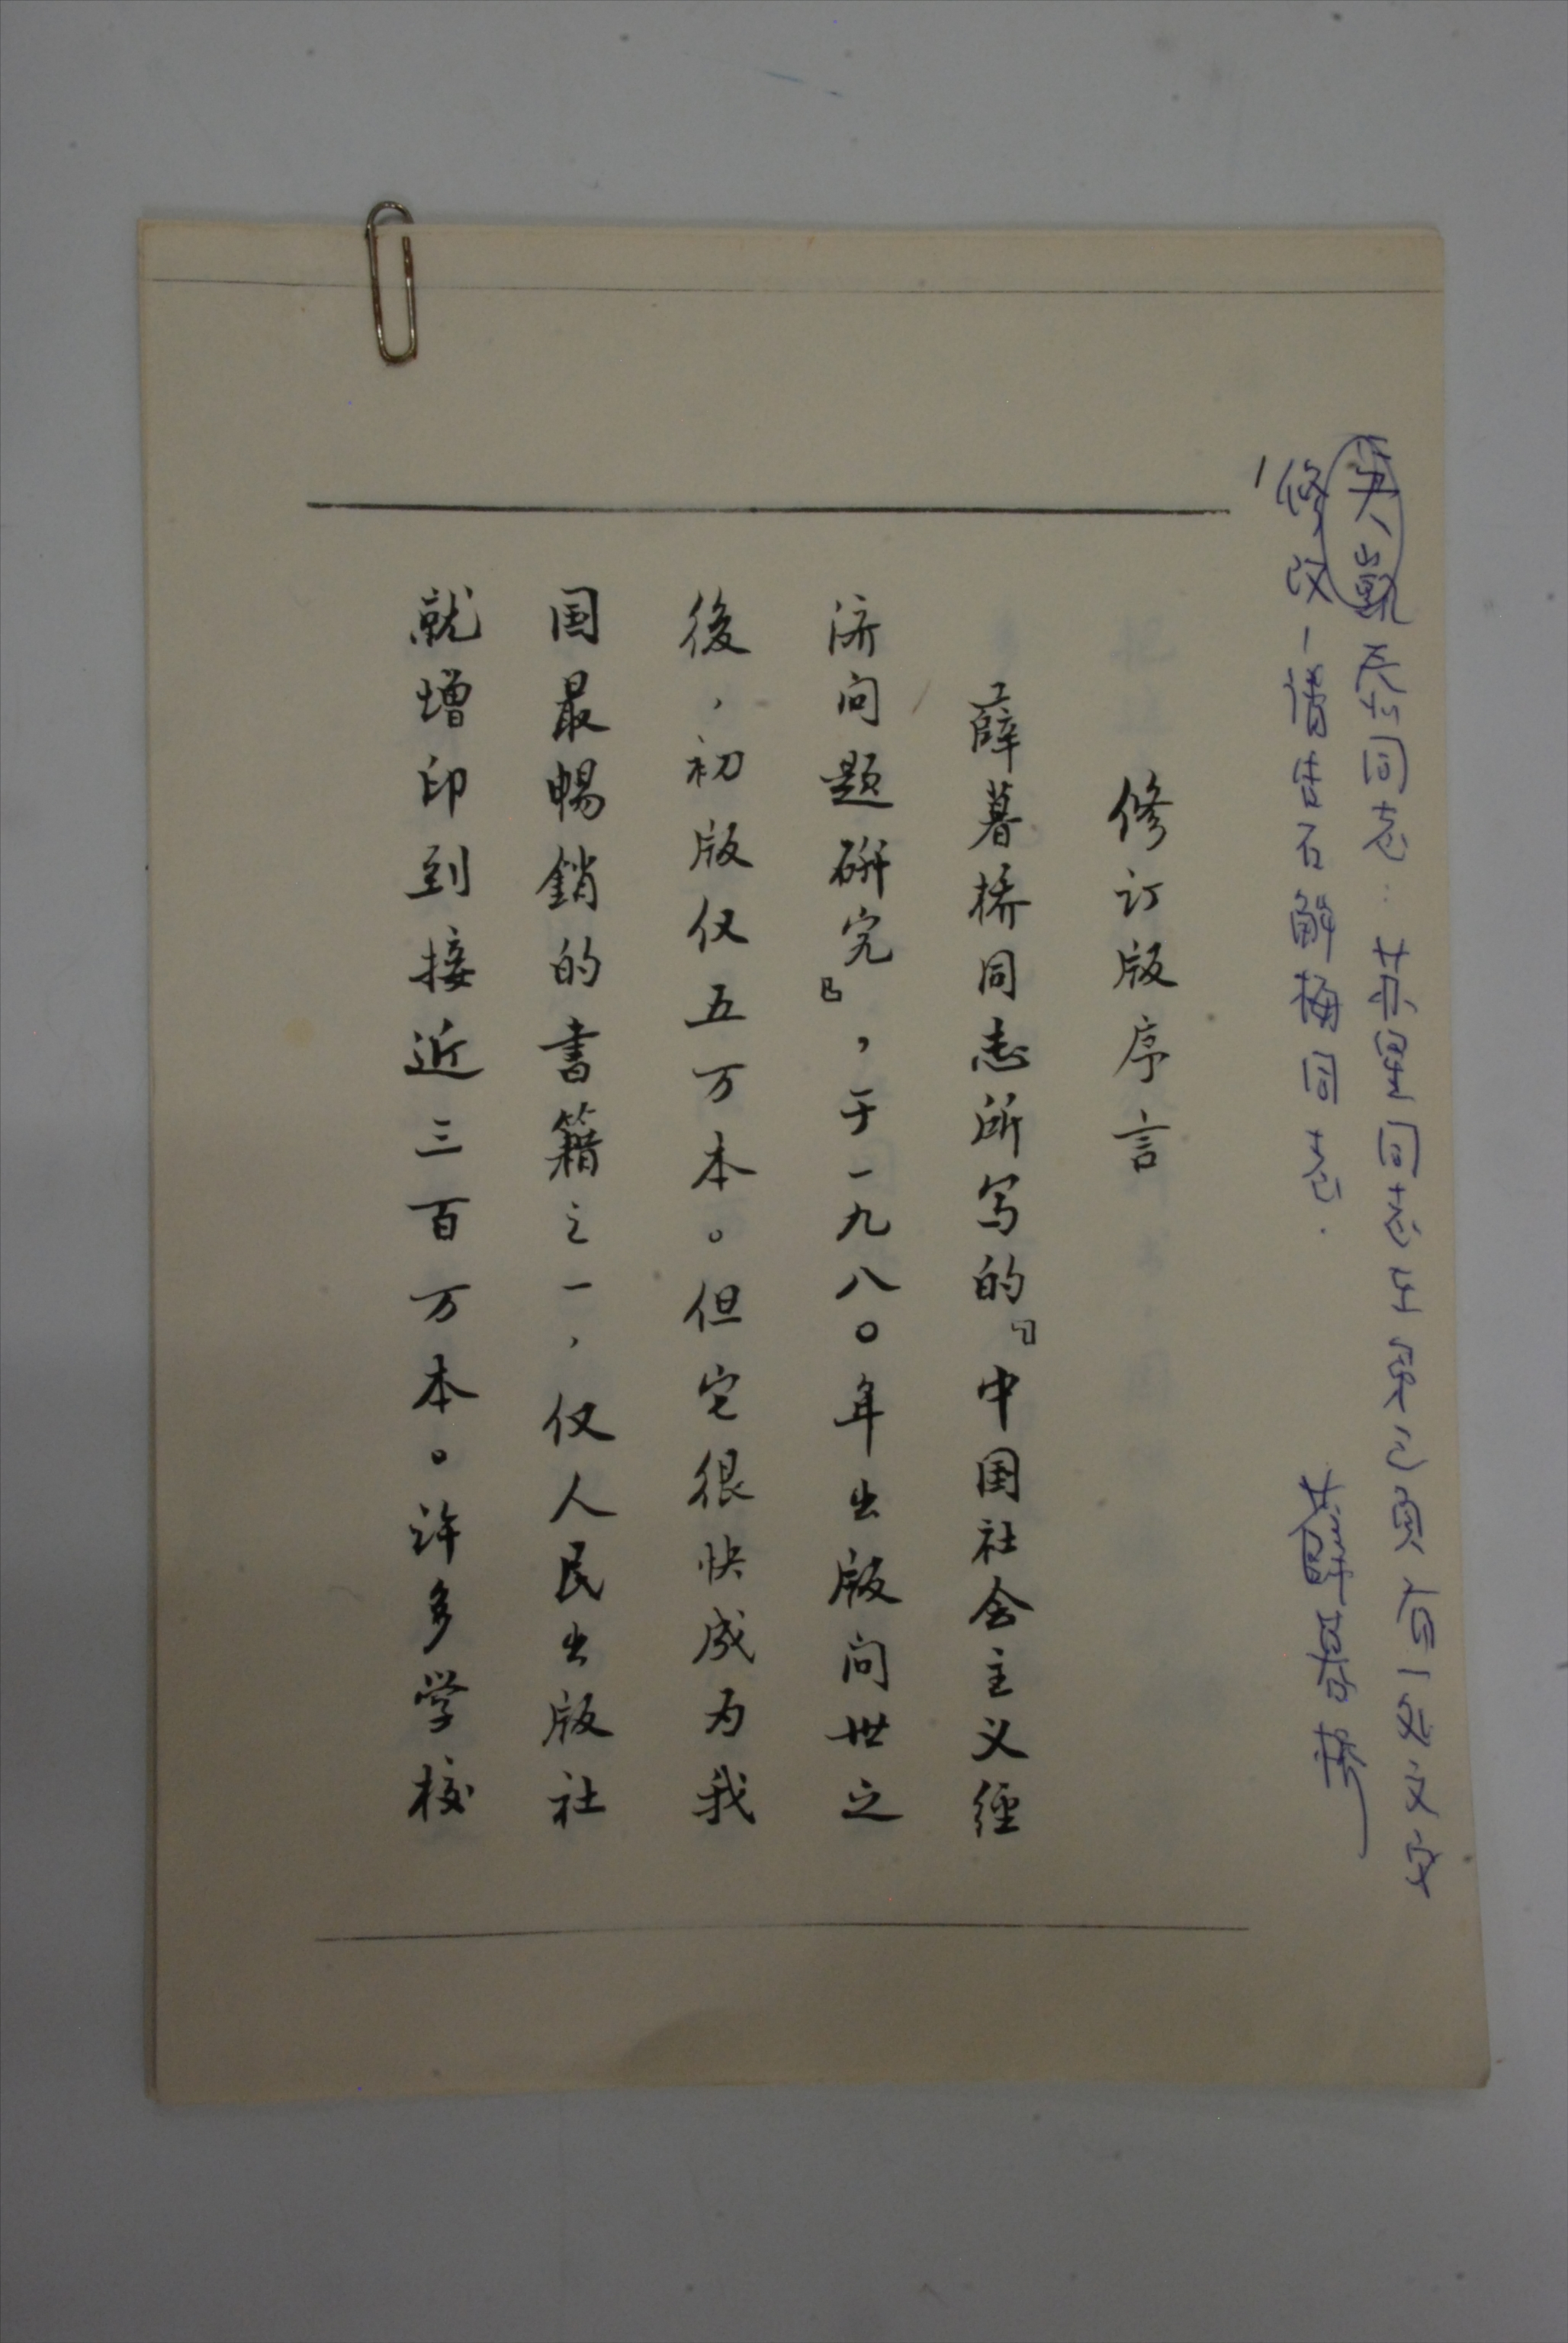 英嵐忝同志：苏星同志在第三頁有一处文字
修改，请告石解梅同志．
薛暮桥
修订版序言
薛暮桥同志所写的『中国社会主义经
济问题研究』，于一九八〇年出版问世之
後，初版仅五万本。但它很快成为我
国最暢銷的書籍之一，仅人民出版社
就增印到接近三百万本。许多学校